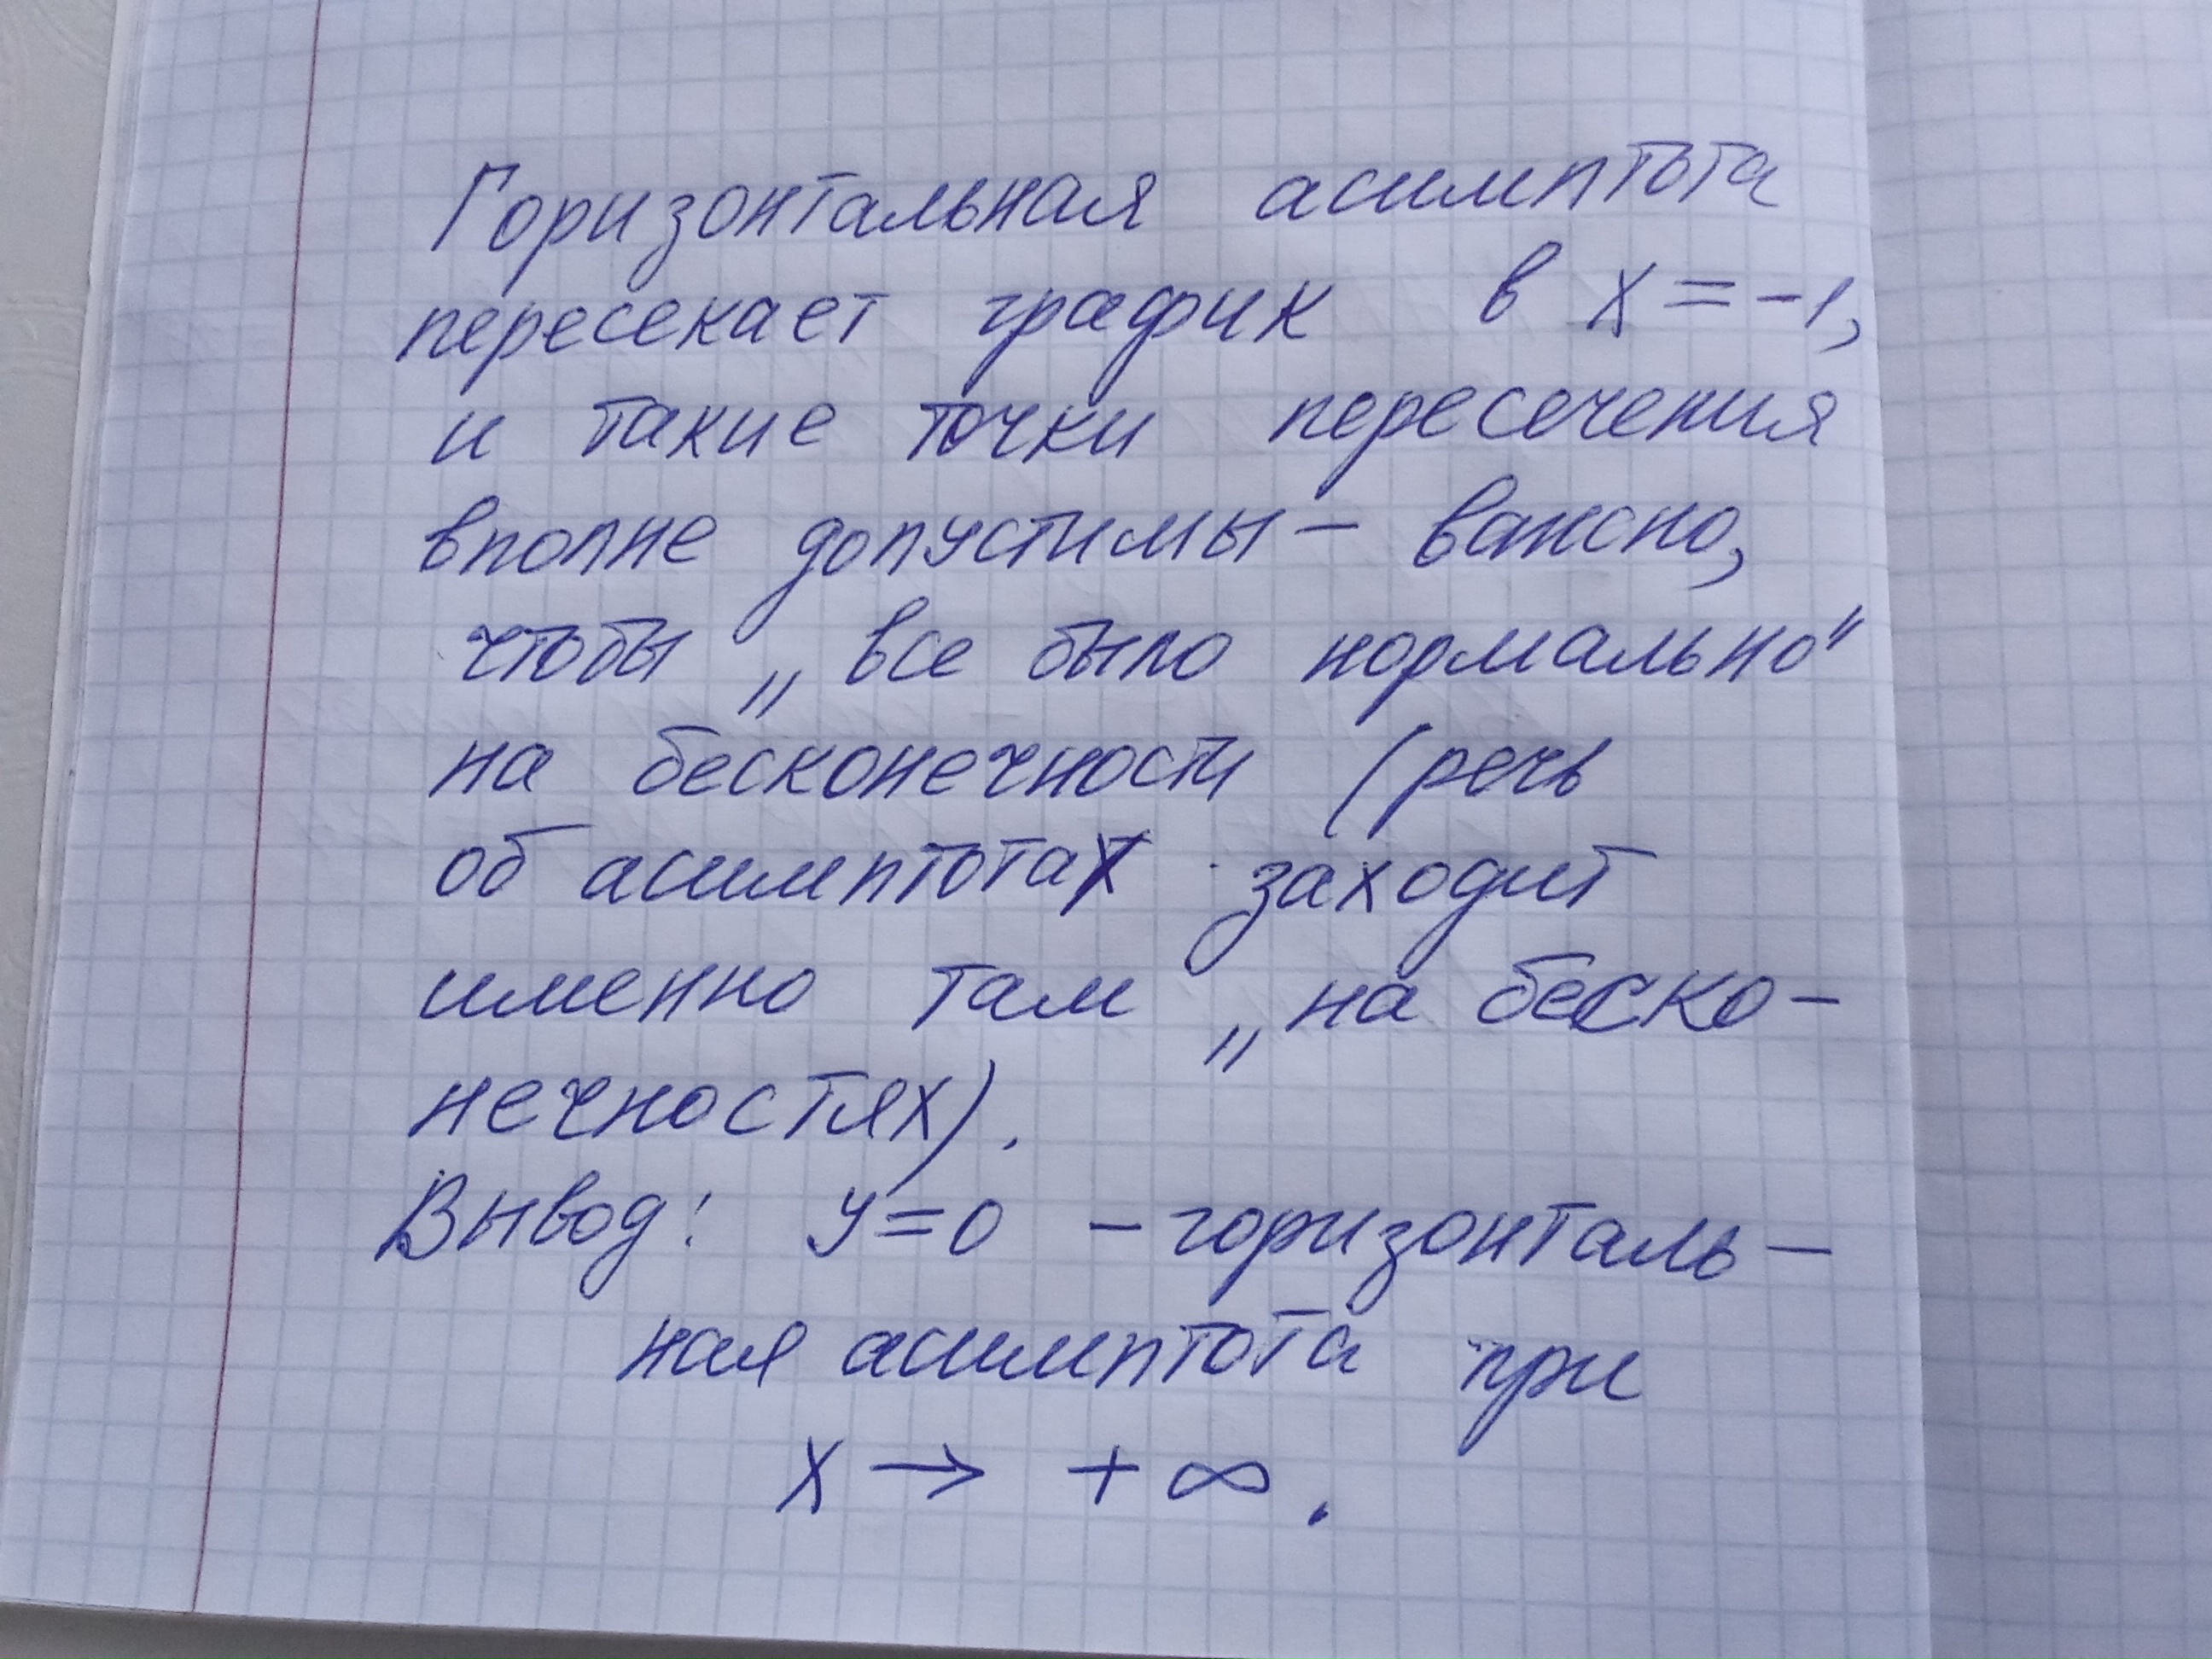 Горизонтальная асимптота
пересекает график в x = -1,
и такие точки пересечения
вполне допустимы – важно,
чтобы „все было нормально"
на бесконечности (речь
об асимптотах заходит
именно там „на беско-
нечностях).
Вывод: y=0 – горизонталь-
ная асимптота при
x → +∞.